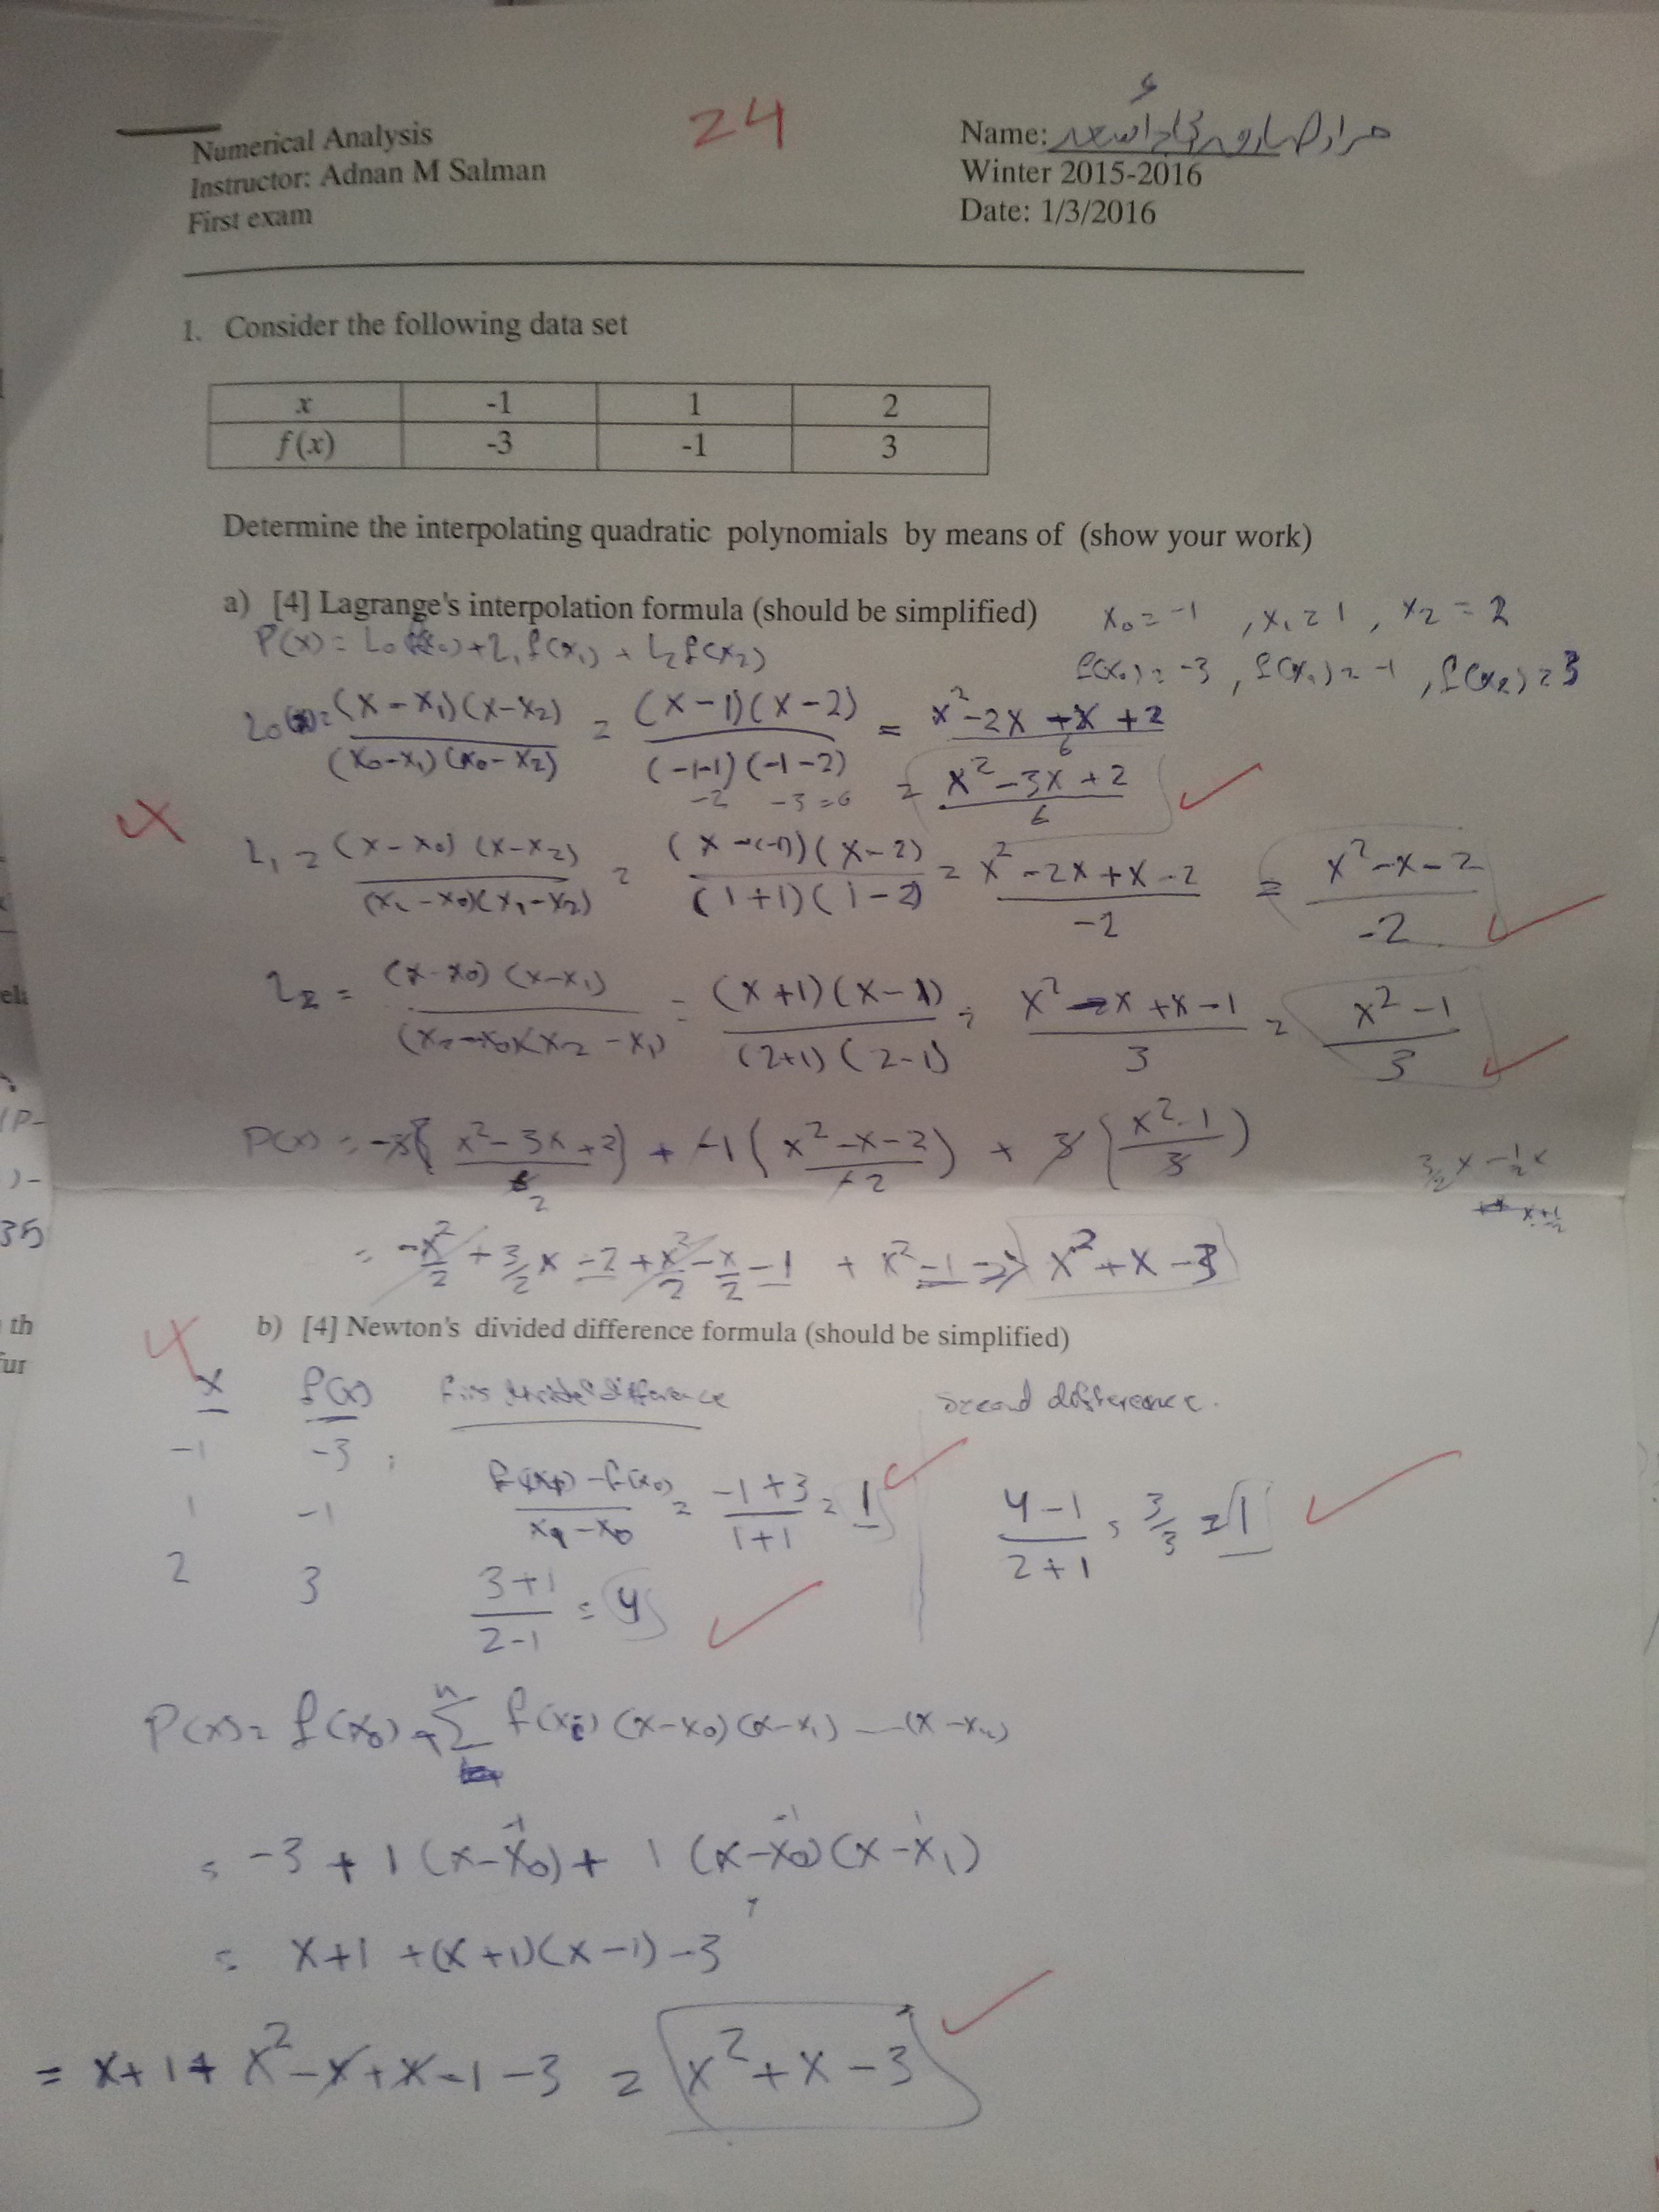 Numerical Analysis
Instructor: Adnan M Salman
First exam
24
Name:
Winter 2015-2016
Date: 1/3/2016
1. Consider the following data set
x -1 1 2
f(x) -3 -1 3
Determine the interpolating quadratic polynomials by means of (show your work)
a) [4] Lagrange's interpolation formula (should be simplified)
x₀ = -1 , x₁ = 1 , x₂ = 2
P(x) = L₀ f(x₀) + L₁ f(x₁) + L₂ f(x₂)
f(x₀) = -3 , f(x₁) = -1 , f(x₂) = 3
L₀ = (x - x₁)(x - x₂) / (x₀ - x₁)(x₀ - x₂) = (x - 1)(x - 2) / (-1-1)(-1-2) = x² - 2x - x + 2 / 6
-2 -3 = 6
= x² - 3x + 2 / 6
4
L₁ = (x - x₀)(x - x₂) / (x₁ - x₀)(x₁ - x₂) = (x - (-1))(x - 2) / (1+1)(1-2) = x² - 2x + x - 2 / -2 = x² - x - 2 / -2
L₂ = (x - x₀)(x - x₁) / (x₂ - x₀)(x₂ - x₁) = (x + 1)(x - 1) / (2+1)(2-1) = x² - x + x - 1 / 3 = x² - 1 / 3
P(x) = -3(x² - 3x + 2 / 6) + -1(x² - x - 2 / -2) + 3(x² - 1 / 3)
2
3/2 x - 1/2 x
= -x²/2 + 3/2 x - 2 + x²/2 - x/2 - 1 + x² - 1 => x² + x - 3
b) [4] Newton's divided difference formula (should be simplified)
4
x f(x) difference second difference.
-1 -3
f(x₁) - f(x₀) / x₁ - x₀ = -1 + 3 / 1 + 1 = 1
4 - 1 / 2 + 1 = 3/3 = 1
1 -1
2 3 3 + 1 / 2 - 1 = 4
P(x) = f(x₀) + Σ f(xᵢ) (x - x₀)(x - x₁)
= -3 + 1(x - x₀) + 1(x - x₀)(x - x₁)
= x + 1 + (x + 1)(x - 1) - 3
= x + 1 + x² - x + x - 1 - 3 = x² + x - 3